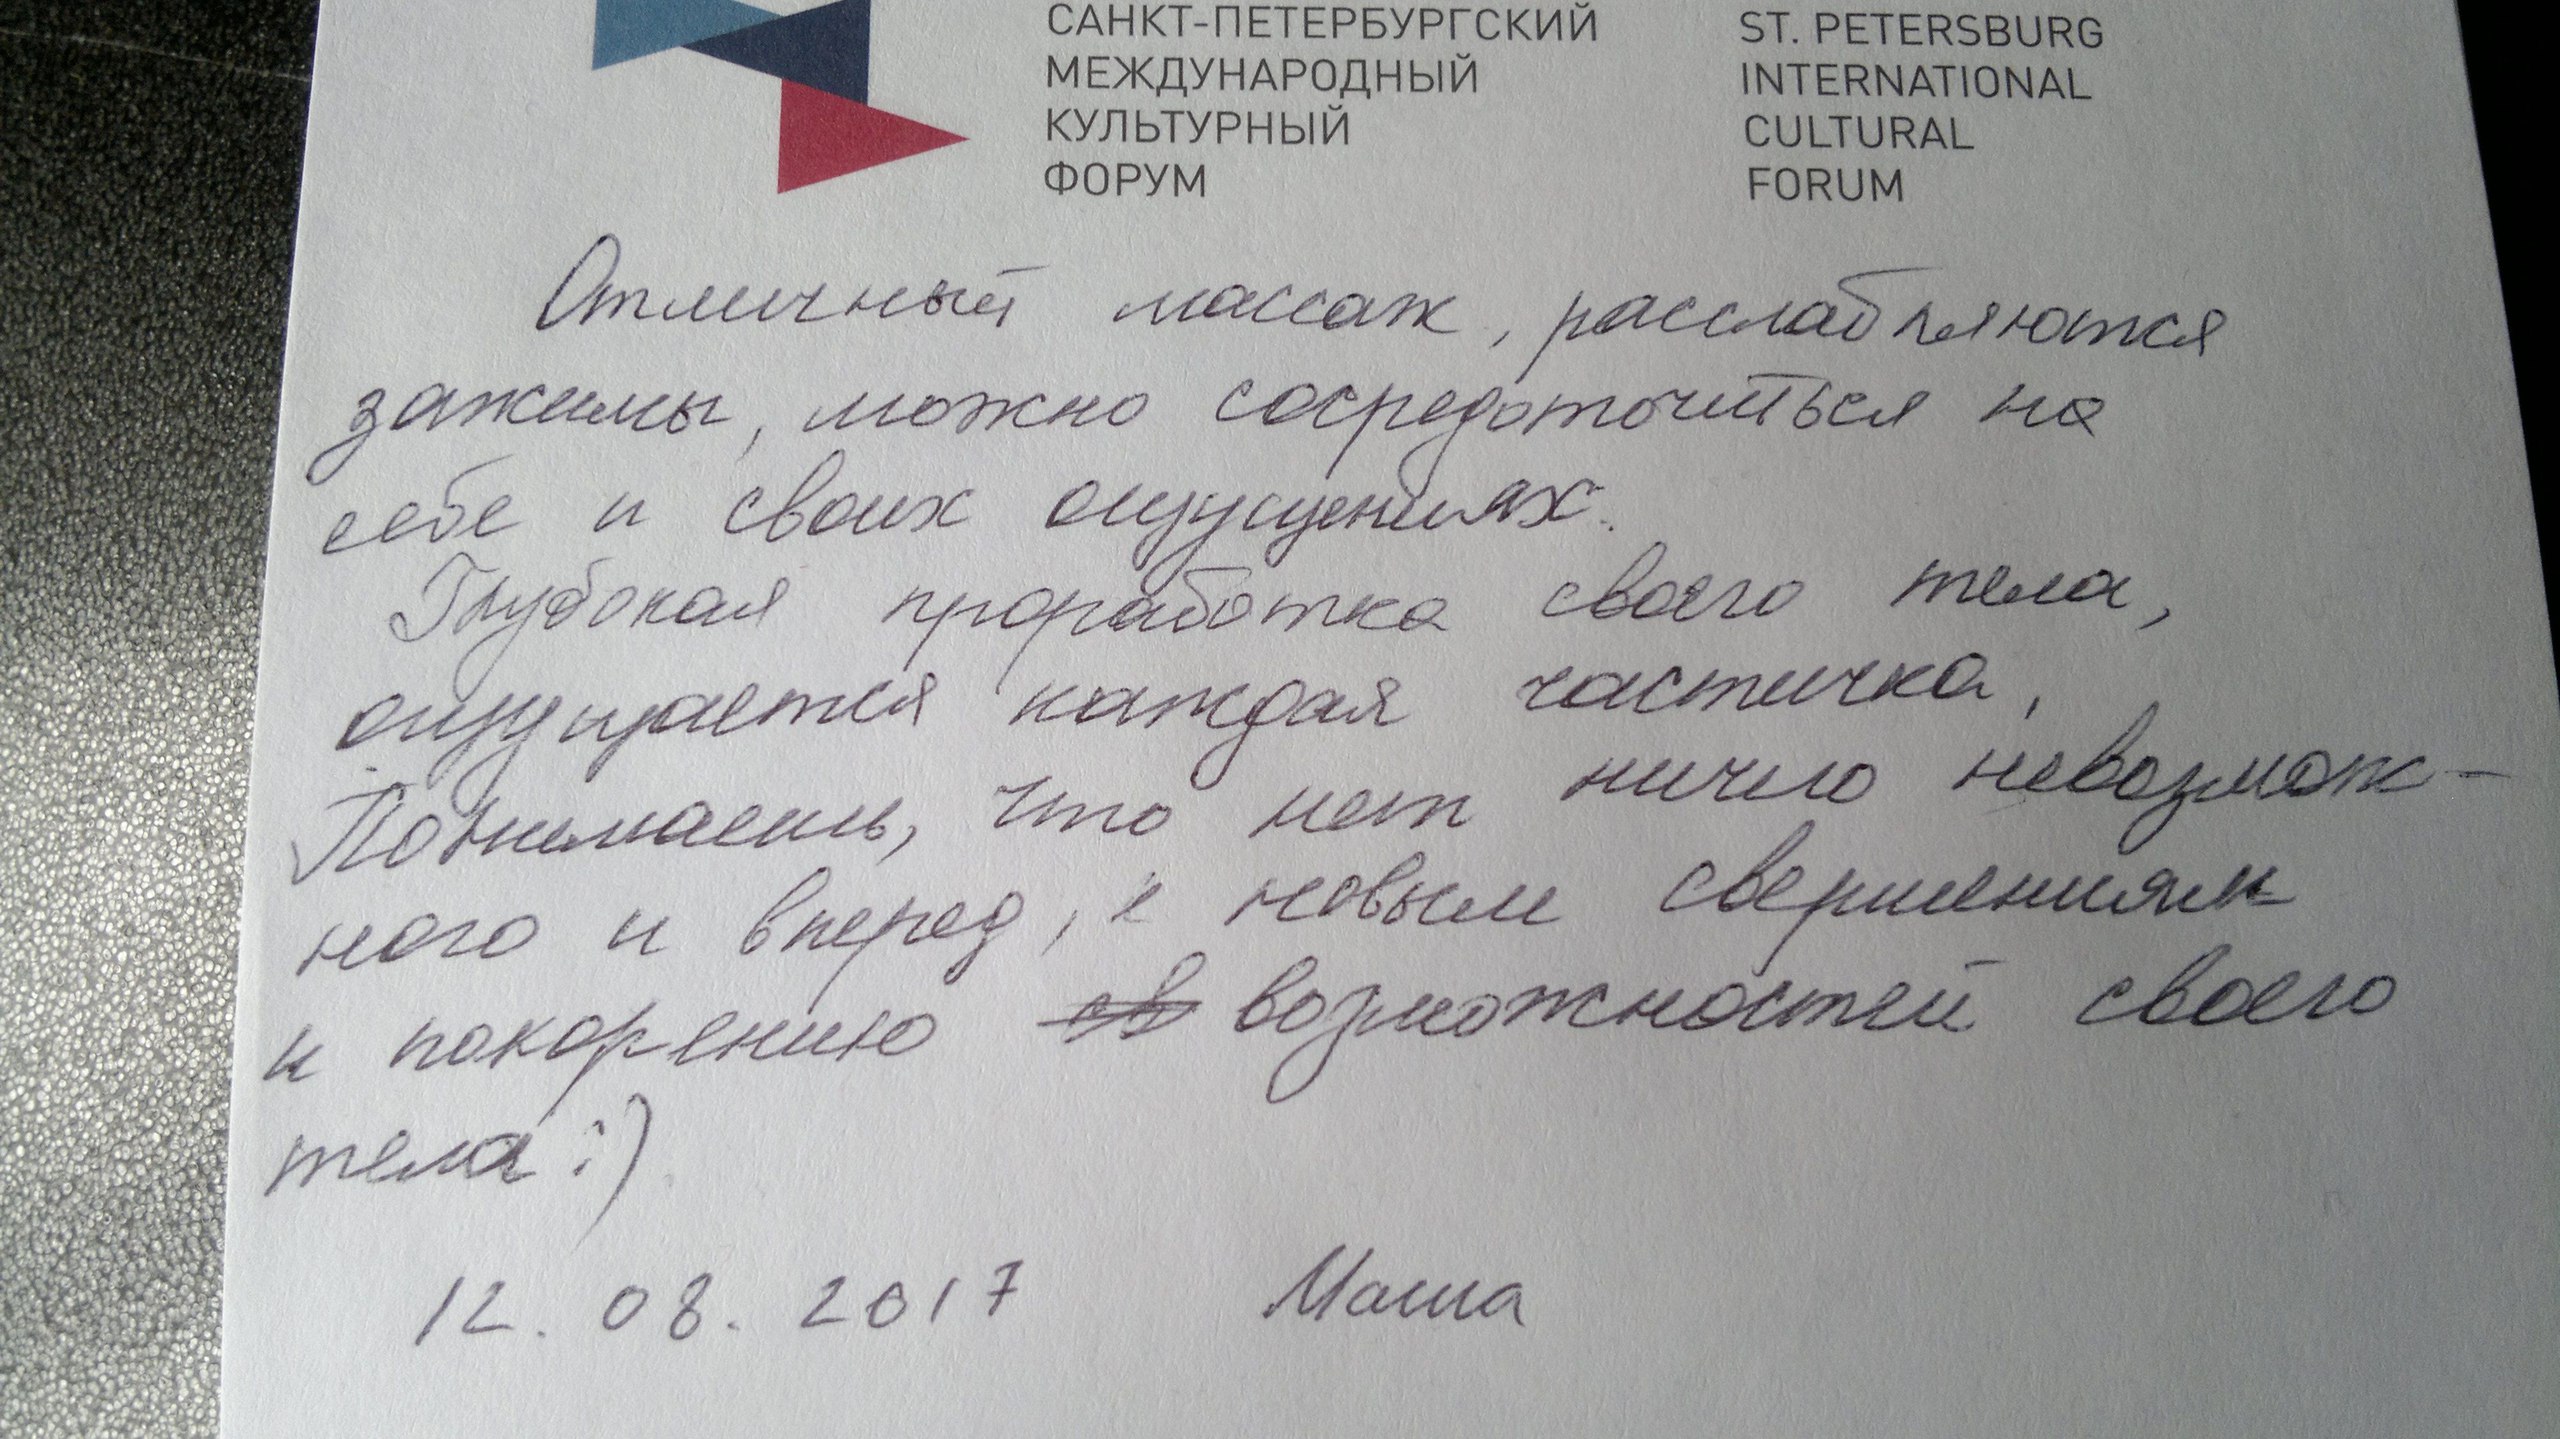 САНКТ-ПЕТЕРБУРГСКИЙ
МЕЖДУНАРОДНЫЙ
КУЛЬТУРНЫЙ
ФОРУМ
ST. PETERSBURG
INTERNATIONAL
CULTURAL
FORUM
Отличный массаж, расслабляются
зажимы, можно сосредоточиться на
себе и своих ощущениях.
Глубокая проработка своего тела,
ощущается каждая частичка.
Понимаешь, что нет ничего невозмож-
ного и вперед, к новым свершениям
и покорению возможностей своего
тела :)
12.08.2017 Маша